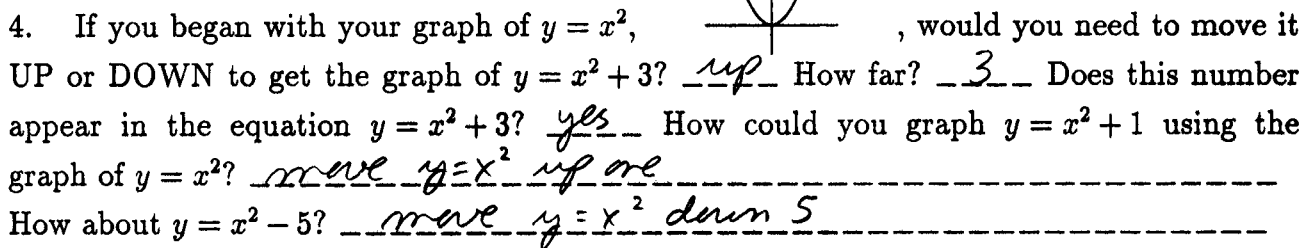 4. If you began with your graph of y = x², , would you need to move it
UP or DOWN to get the graph of y = x² + 3? up How far? 3 Does this number
appear in the equation y = x² + 3? yes How could you graph y = x² + 1 using the
graph of y = x²? move y=x² up one
How about y = x² − 5? move y=x² down 5